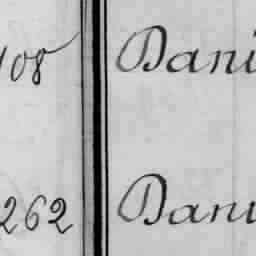 108 Dani
262 Dani